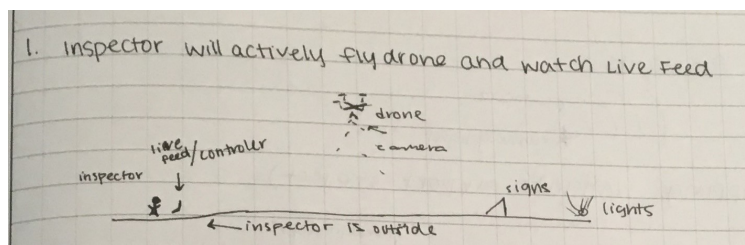 1. Inspector will actively fly drone and watch Live Feed
drone
camera
live
feed/controller
inspector
signs
lights
inspector is outside